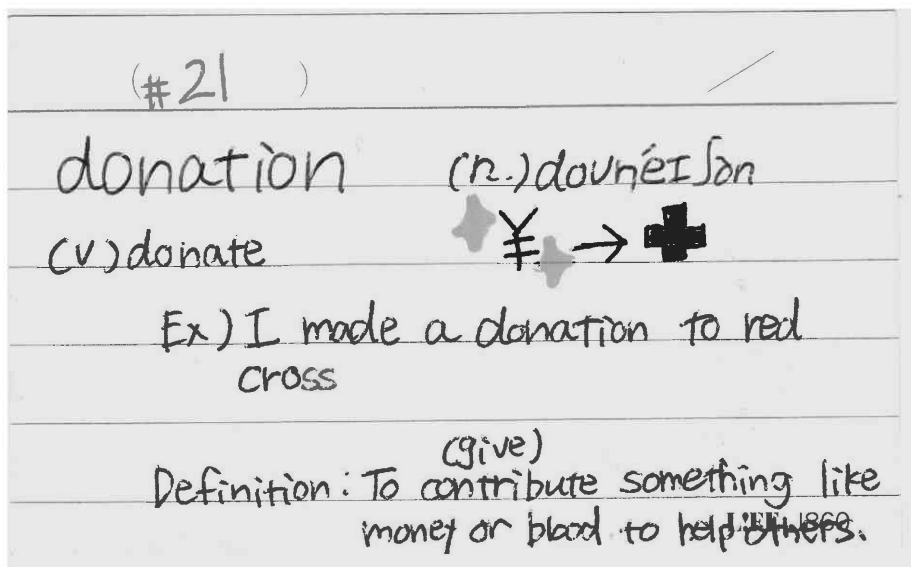 (#21 )
donation (n.) doʊnéɪʃən
(v) donate ¥ → 
Ex) I made a donation to red
cross
(give)
Definition: To contribute something like
money or blood to help others.